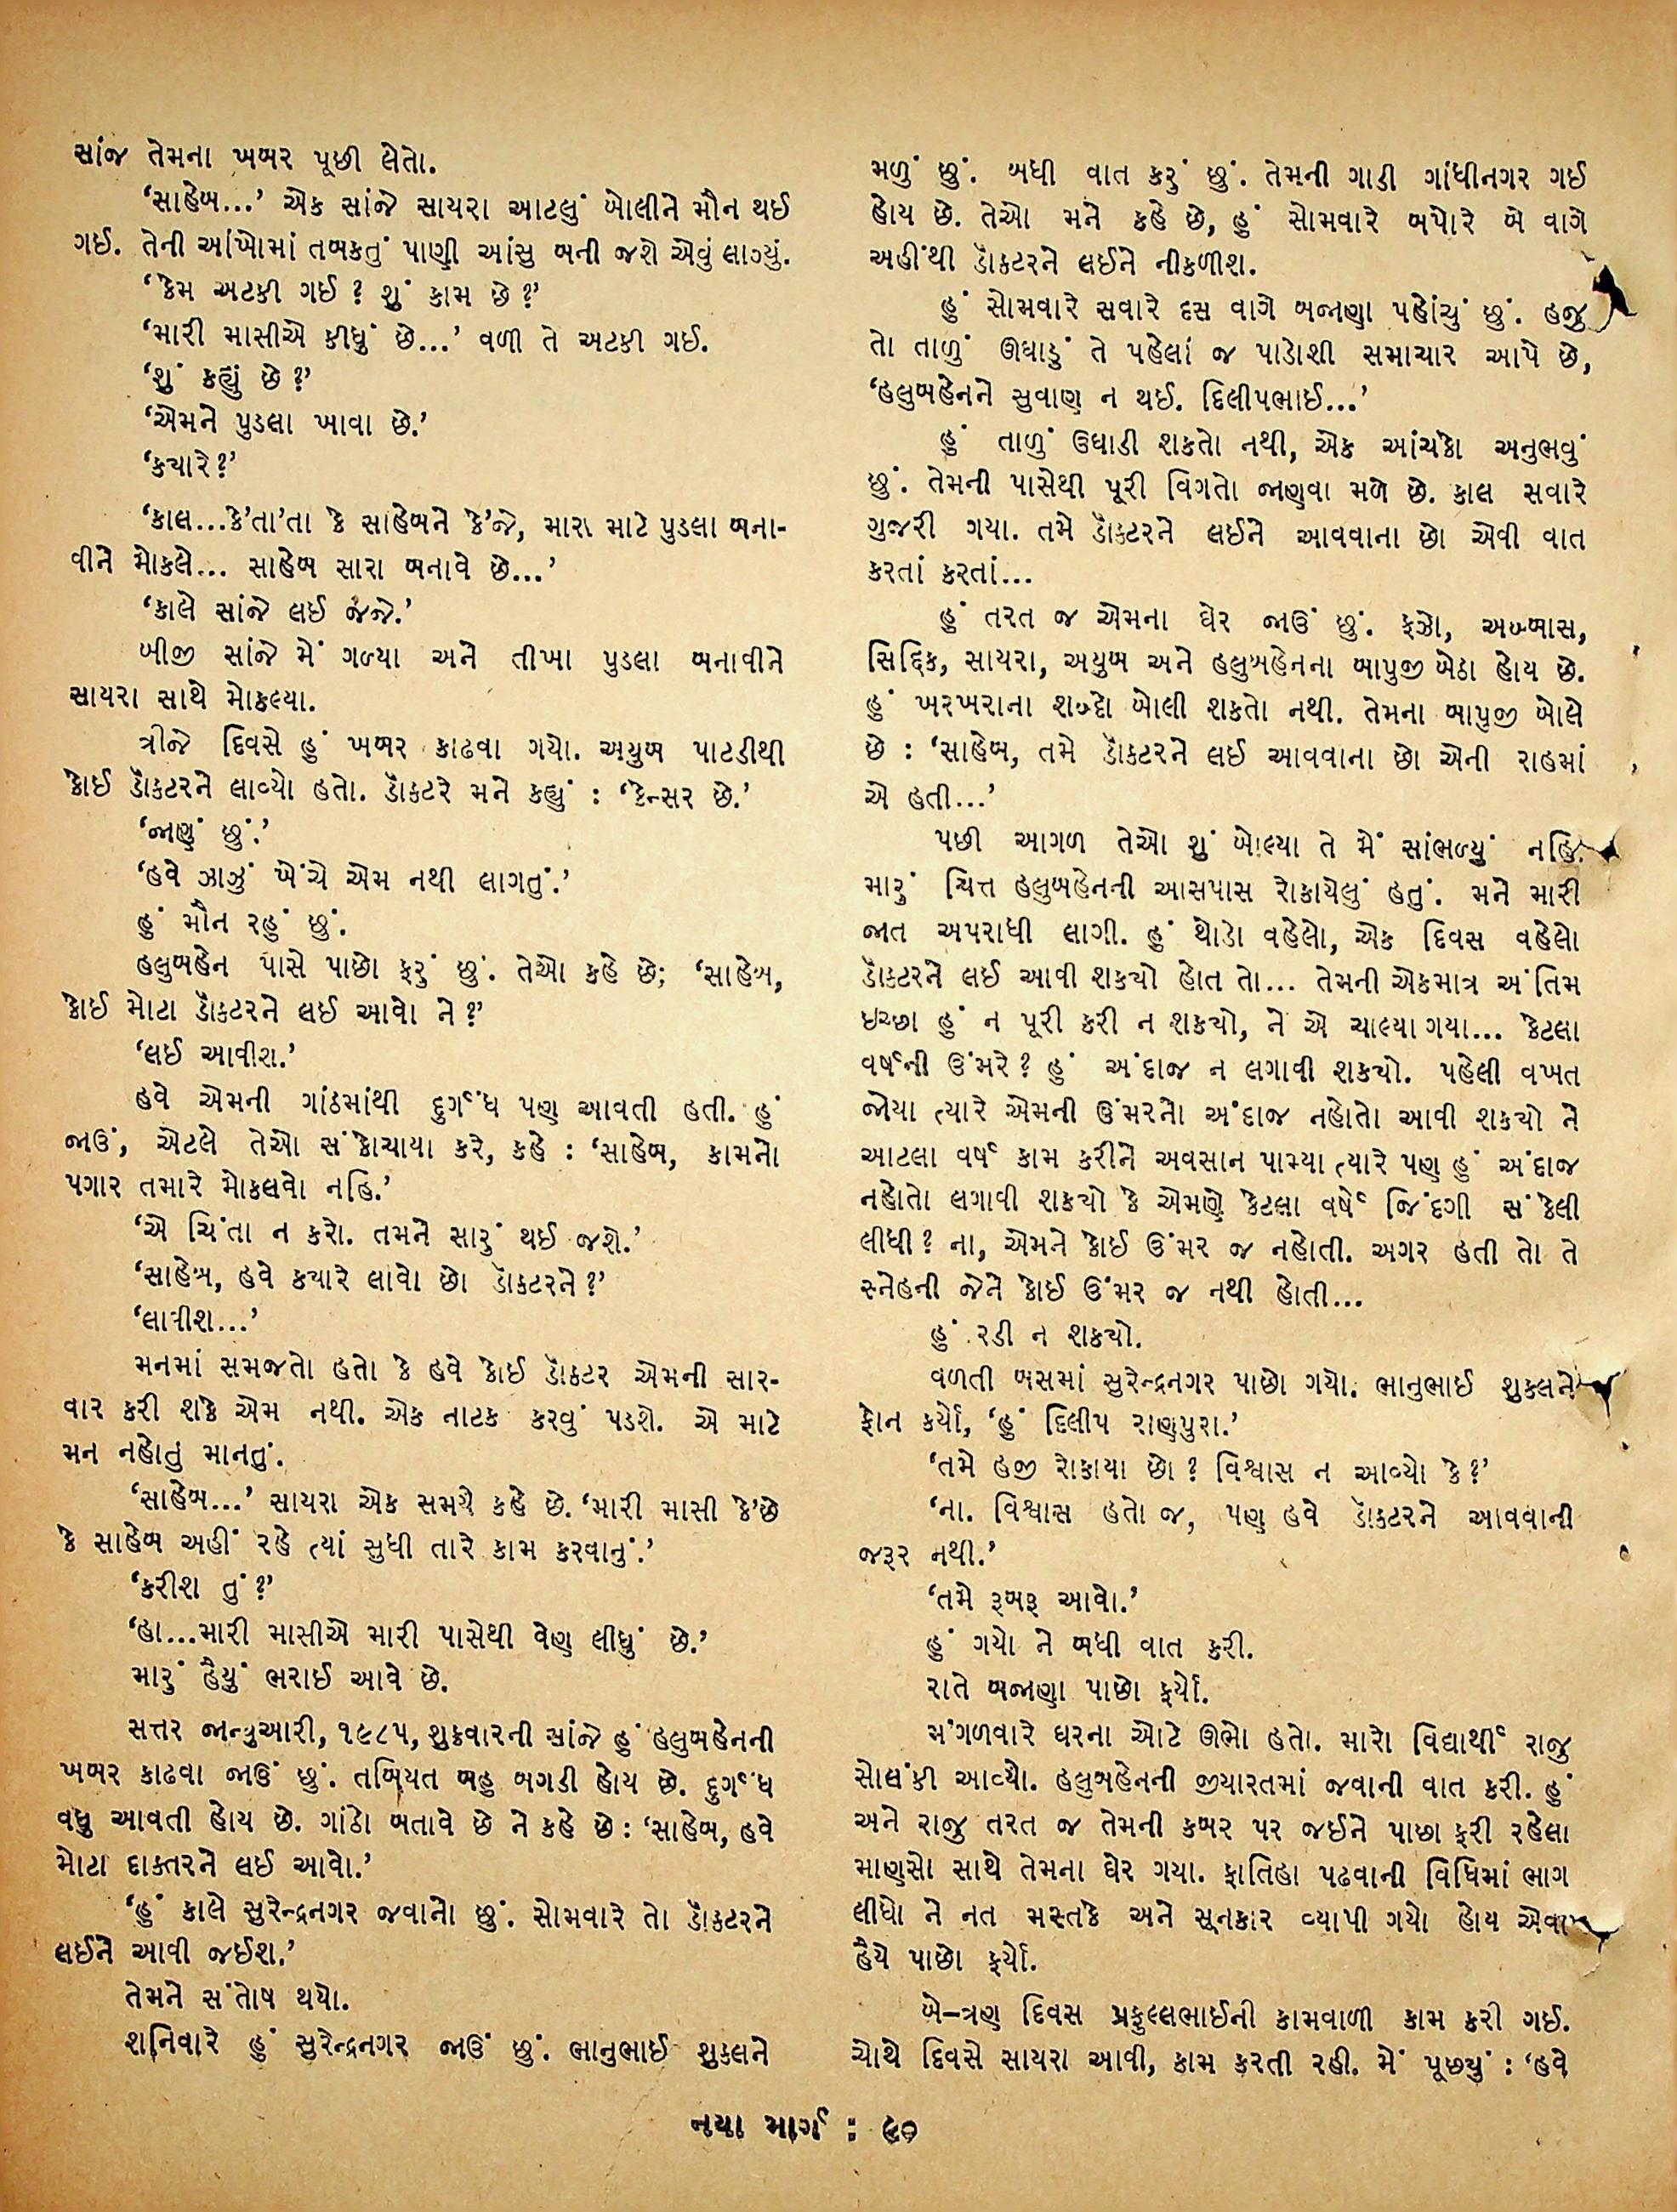 સાંજ તેમના ખબર પૂછી લેતો.
‘સાહેબ...’ એક સાંજે સાયરા આટલું બોલીને મૌન થઈ
ગઈ. તેની આંખોમાં તબકતું પાણી આંસુ બની જશે એવું લાગ્યું.
‘કેમ અટકી ગઈ? શું કામ છે?’
‘મારી માસીએ કીધું છે...’ વળી તે અટકી ગઈ.
‘શું કહ્યું છે?’
‘એમને પુડલા ખાવા છે.’
‘ક્યારે?’
‘કાલ...કે’તા’તા કે સાહેબને કે’જે, મારા માટે પુડલા બના-
વીને મોકલે... સાહેબ સારા બનાવે છે...’
‘કાલે સાંજે લઈ જજે.’
બીજી સાંજે મેં ગળ્યા અને તીખા પુડલા બનાવીને
સાયરા સાથે મોકલ્યા.
ત્રીજે દિવસે હું ખબર કાઢવા ગયો. અયુબ પાટડીથી
કોઈ ડૉક્ટરને લાવ્યો હતો. ડૉક્ટરે મને કહ્યું : ‘કેન્સર છે.’
‘જાણું છું.’
‘હવે ઝાઝું ખેંચે એમ નથી લાગતું.’
હું મૌન રહું છું.
હલુબહેન પાસે પાછો ફરું છું. તેઓ કહે છે; ‘સાહેબ,
કોઈ મોટા ડૉક્ટરને લઈ આવો ને?’
‘લઈ આવીશ.’
હવે એમની ગાંઠમાંથી દુર્ગંધ પણ આવતી હતી. હું
જાઉં, એટલે તેઓ સંકોચાયા કરે, કહે : ‘સાહેબ, કામનો
પગાર તમારે મોકલવો નહિ.’
‘એ ચિંતા ન કરો. તમને સારું થઈ જશે.’
‘સાહેબ, હવે ક્યારે લાવો છો ડૉક્ટરને?’
‘લાવીશ...’
મનમાં સમજતો હતો કે હવે કોઈ ડૉક્ટર એમની સાર-
વાર કરી શકે એમ નથી. એક નાટક કરવું પડશે. એ માટે
મન નહોતું માનતું.
‘સાહેબ...’ સાયરા એક સમયે કહે છે. ‘મારી માસી કે’છે
કે સાહેબ અહીં રહે ત્યાં સુધી તારે કામ કરવાનું.’
‘કરીશ તું?’
‘હા...મારી માસીએ મારી પાસેથી વેણ લીધું છે.’
મારું હૈયું ભરાઈ આવે છે.
સત્તર જાન્યુઆરી, ૧૯૮૫, શુક્રવારની સાંજે હું હલુબહેનની
ખબર કાઢવા જાઉં છું. તબિયત બહુ બગડી હોય છે. દુર્ગંધ
વધુ આવતી હોય છે. ગાંઠો બતાવે છે ને કહે છે : ‘સાહેબ, હવે
મોટા દાક્તરને લઈ આવો.’
‘હું કાલે સુરેન્દ્રનગર જવાનો છું. સોમવારે તો ડૉક્ટરને
લઈને આવી જઈશ.’
તેમને સંતોષ થયો.
શનિવારે હું સુરેન્દ્રનગર જાઉં છું. ભાનુભાઈ શુક્લને
મળું છું. બધી વાત કરું છું. તેમની ગાડી ગાંધીનગર ગઈ
હોય છે. તેઓ મને કહે છે, હું સોમવારે બપોરે બે વાગે
અહીંથી ડૉક્ટરને લઈને નીકળીશ.
હું સોમવારે સવારે દસ વાગે બજાણા પહોંચું છું. હજુ
તો તાળું ઊઘાડું તે પહેલાં જ પાડોશી સમાચાર આપે છે,
‘હલુબહેનને સુવાણ ન થઈ. દિલીપભાઈ...’
હું તાળું ઉઘાડી શકતો નથી, એક આંચકો અનુભવું
છું. તેમની પાસેથી પૂરી વિગતો જાણવા મળે છે. કાલ સવારે
ગુજરી ગયા. તમે ડૉક્ટરને લઈને આવવાના છો એવી વાત
કરતાં કરતાં...
હું તરત જ એમના ઘેર જાઉં છું. ફઝો, અબ્બાસ,
સિદ્દિક, સાયરા, અયુબ અને હલુબહેનના બાપુજી બેઠા હોય છે.
હું ખરખરાના શબ્દો બોલી શકતો નથી. તેમના બાપુજી બોલે
છે : ‘સાહેબ, તમે ડૉક્ટરને લઈ આવવાના છો એની રાહમાં
એ હતી...’
પછી આગળ તેઓ શું બોલ્યા તે મેં સાંભળ્યું નહિ.
મારું ચિત્ત હલુબહેનની આસપાસ રોકાયેલું હતું. મને મારી
જાત અપરાધી લાગી. હું થોડો વહેલો, એક દિવસ વહેલો
ડૉક્ટરને લઈ આવી શક્યો હોત તો... તેમની એકમાત્ર અંતિમ
ઇચ્છા હું ન પૂરી કરી ન શક્યો, ને એ ચાલ્યા ગયા... કેટલા
વર્ષની ઉંમરે? હું અંદાજ ન લગાવી શક્યો. પહેલી વખત
જોયા ત્યારે એમની ઉંમરનો અંદાજ નહોતો આવી શક્યો ને
આટલા વર્ષ કામ કરીને અવસાન પામ્યા ત્યારે પણ હું અંદાજ
નહોતો લગાવી શક્યો કે એમણે કેટલા વર્ષે જિંદગી સંકેલી
લીધી? ના, એમને કોઈ ઉંમર જ નહોતી. અગર હતી તો તે
સ્નેહની જેને કોઈ ઉંમર જ નથી હોતી...
હું રડી ન શક્યો.
વળતી બસમાં સુરેન્દ્રનગર પાછો ગયો. ભાનુભાઈ શુક્લને
ફોન કર્યો, ‘હું દિલીપ રાણપુરા.’
‘તમે હજી રોકાયા છો? વિશ્વાસ ન આવ્યો કે?’
‘ના. વિશ્વાસ હતો જ, પણ હવે ડૉક્ટરને આવવાની
જરૂર નથી.’
‘તમે રૂબરૂ આવો.’
હું ગયો ને બધી વાત કરી.
રાતે બજાણા પાછો ફર્યો.
મંગળવારે ઘરના ઓટે ઊભો હતો. મારો વિદ્યાર્થી રાજુ
સોલંકી આવ્યો. હલુબહેનની જીયારતમાં જવાની વાત કરી. હું
અને રાજુ તરત જ તેમની કબર પર જઈને પાછા ફરી રહેલા
માણસો સાથે તેમના ઘેર ગયા. ફાતિહા પઢવાની વિધિમાં ભાગ
લીધો ને નત મસ્તકે અને સૂનકાર વ્યાપી ગયો હોય એવા
હૈયે પાછો ફર્યો.
બે–ત્રણ દિવસ પ્રફુલ્લભાઈની કામવાળી કામ કરી ગઈ.
ચોથે દિવસે સાયરા આવી, કામ કરતી રહી. મેં પૂછ્યું : ‘હવે
નયા માર્ગ : ૯૦